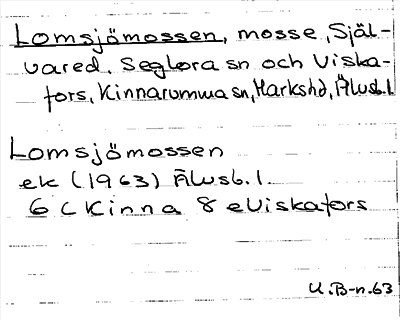 Lomsjömossen, mosse, Själ-
vared, Seglora sn och Viska-
fors, Kinnarumma sn, Markshd, Älvsb. l
Lomsjömossen
ek (1963) Älvsb. l.
6 C Kinna 8 e Viskafors
U.B-n. 63